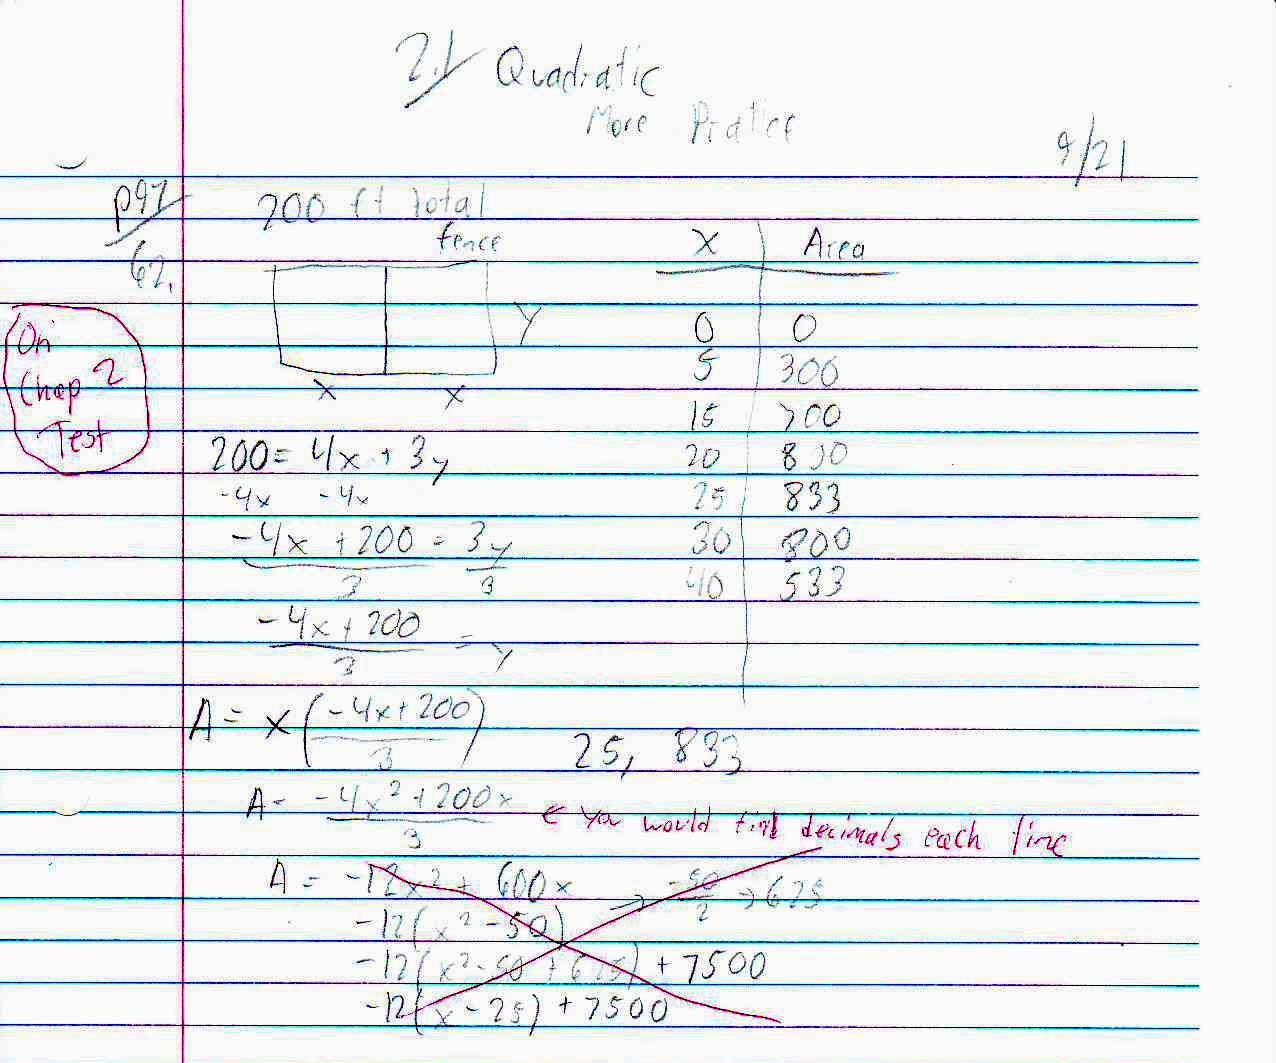 2.1 Quadratic
More Pratice
9/21
p97
62.
200 ft total
fence
y
x x
On
Chap 2
Test
200 = 4x + 3y
-4x -4x
-4x + 200 = 3y
3 3
-4x + 200 = y
3
x Area
0 0
5 300
15 700
20 800
25 833
30 800
40 533
A = x(-4x+200)
3
25, 833
A = -4x² + 200x
3
← you would find decimals each line
A = -12x² + 600x → -50 → 625
2
-12(x² - 50)
-12(x² - 50 + 625) + 7500
-12(x - 25) + 7500